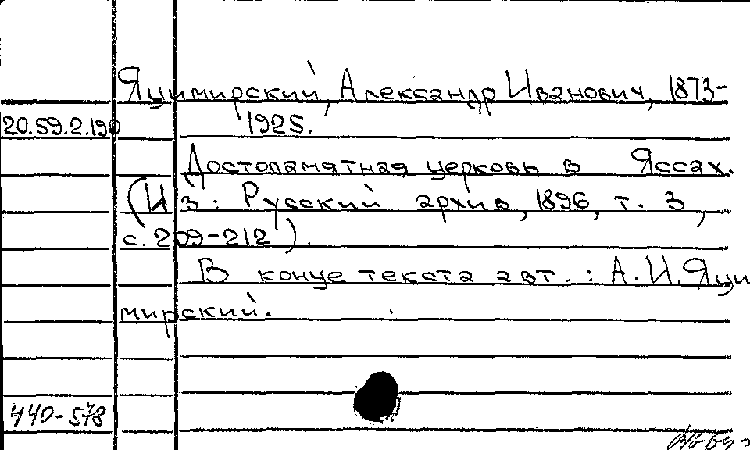 Яцимирский, Александр Иванович, 1873-
20.59.2.190 1925.
Достопамятная церковь в Яссах.
(Из: Русский архив, 1896, т. 3,
с. 209-212).
В конце текста авт.: А.И.Яци
мирский.
440-578